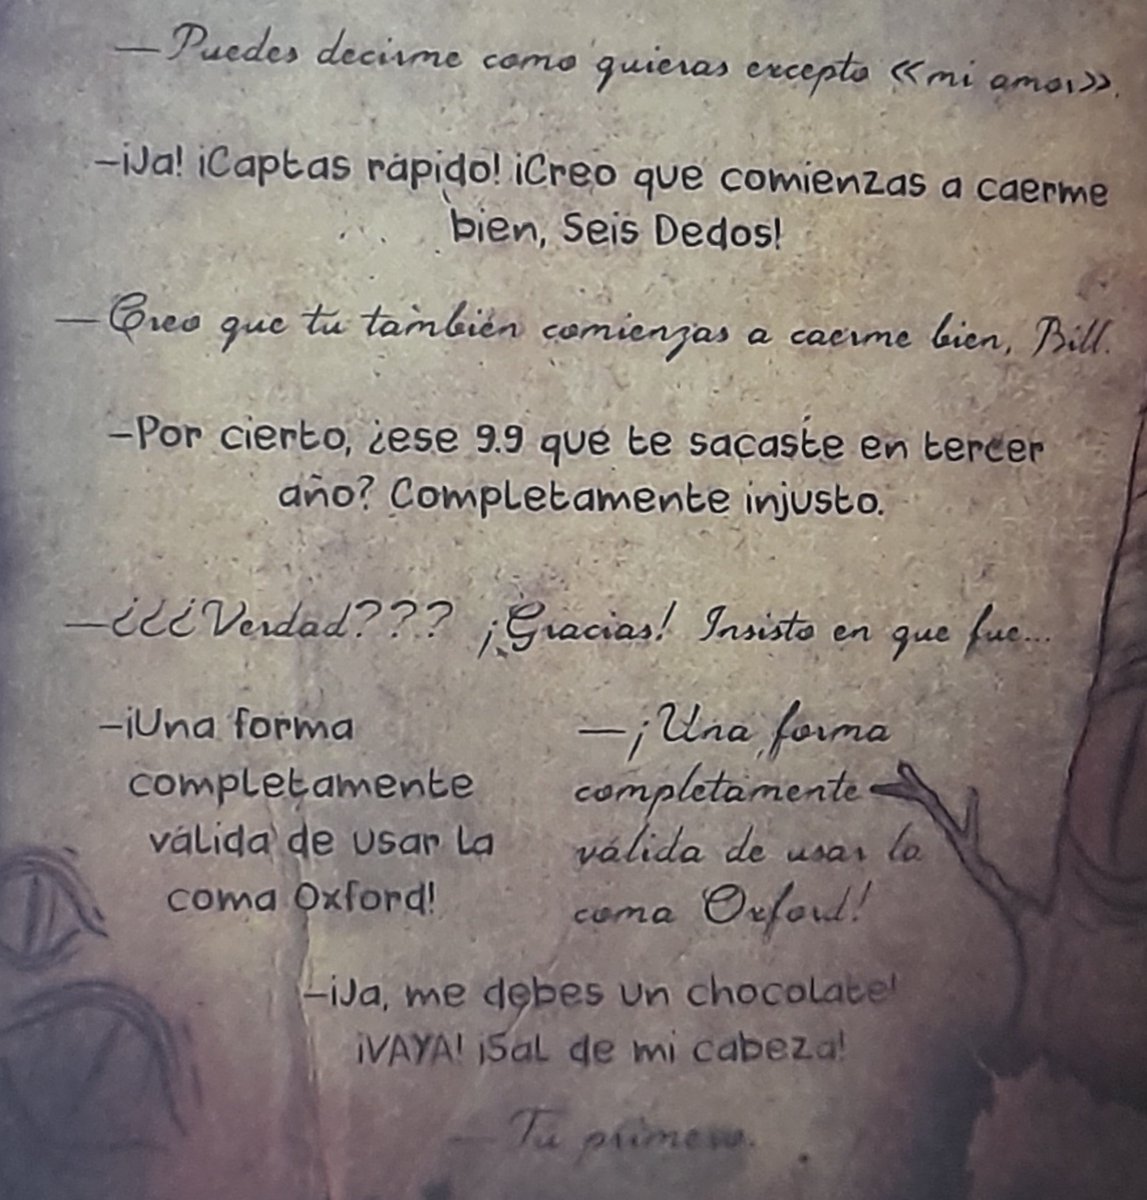 —Puedes decirme como quieras excepto «mi amor».
–¡Ja! ¡Captas rápido! ¡Creo que comienzas a caerme
bien, Seis Dedos!
—Creo que tu también comienzas a caerme bien, Bill.
–Por cierto, ¿ese 9.9 que te sacaste en tercer
año? Completamente injusto.
—¿¿¿Verdad??? ¡Gracias! Insisto en que fue...
–¡Una forma
completamente
válida de usar la
coma Oxford!
—¡Una forma
completamente
válida de usar la
coma Oxford!
–¡Ja, me debes un chocolate!
¡VAYA! ¡Sal de mi cabeza!
—Tu primero.